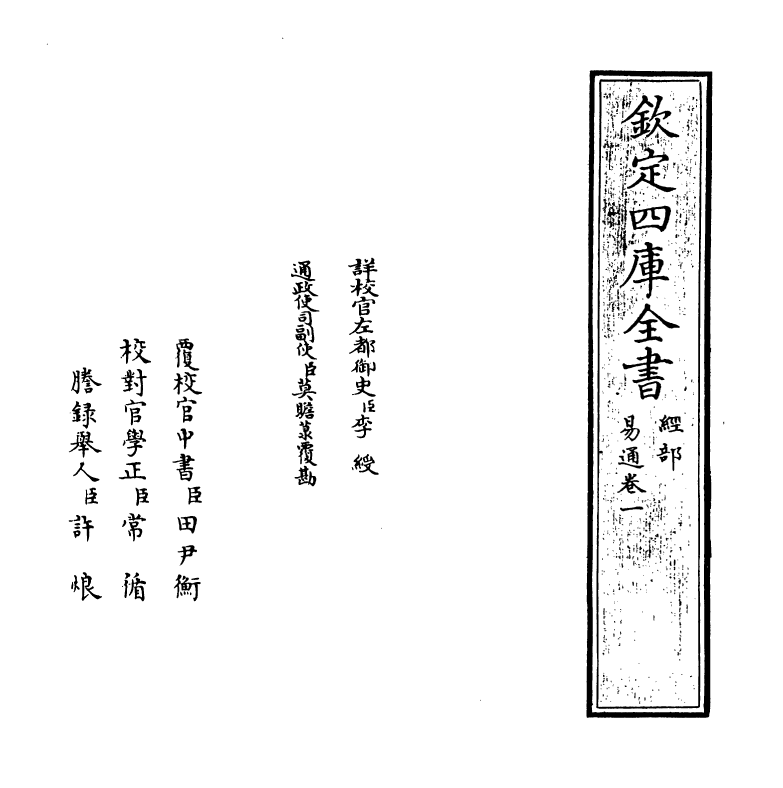 欽定四庫全書
經部
易通卷一
詳校官左都御史臣李綬
通政使司副使臣莫瞻菉覆勘
覆校官中書臣田尹衡
校對官學正臣常循
謄錄舉人臣許烺